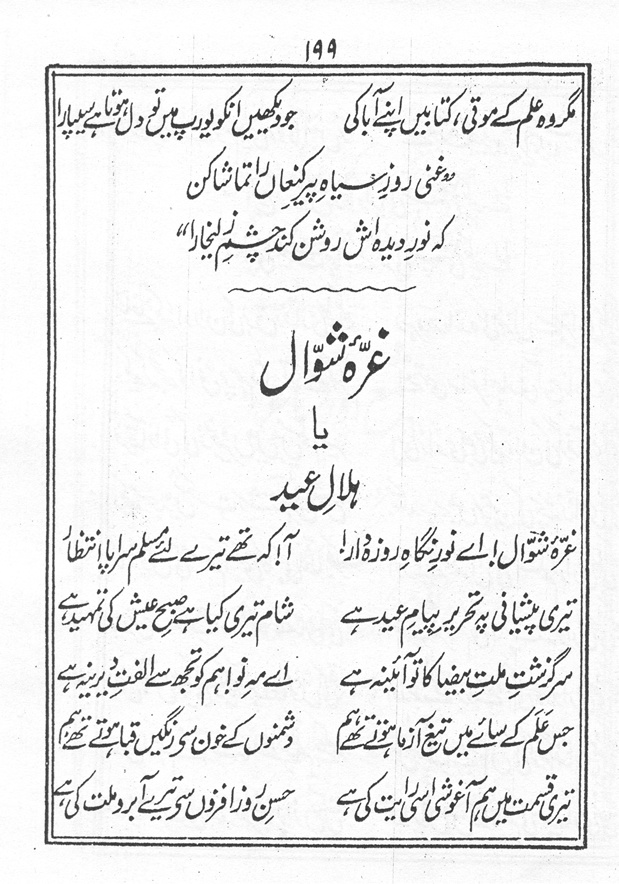 ۱۹۹
مگر وہ علم کے موتی، کتابیں اپنے آبا کی جو دیکھیں انکو یورپ میں تو دل ہوتا ہے سیپارا
”غنی روزِ سیاہِ پیرِ کنعاں را تماشا کن
کہ نورِ دیدہ اش روشن کند چشمِ زلیخا را“
غرّۂ شوّال
یا
ہلالِ عید
غرّۂ شوّال! اے نورِ نگاہِ روزہ دار! آ! کہ تھے تیرے لئے مسلم سراپا انتظار
تیری پیشانی پہ تحریرِ پیامِ عید ہے شام تیری کیا ہے صبحِ عیش کی تمہید ہے
سرگزشتِ ملتِ بیضا کا تو آئینہ ہے اے مہِ نو! ہم کو تجھ سے الفتِ دیرینہ ہے
جس عَلَم کے سائے میں تیغ آزما ہوتے تھے ہم دشمنوں کے خون سے رنگیں قبا ہوتے تھے ہم
تیری قسمت میں ہم آغوشی اسی رایت کی ہے حسنِ روز افزوں سے تیرے آبرو ملت کی ہے